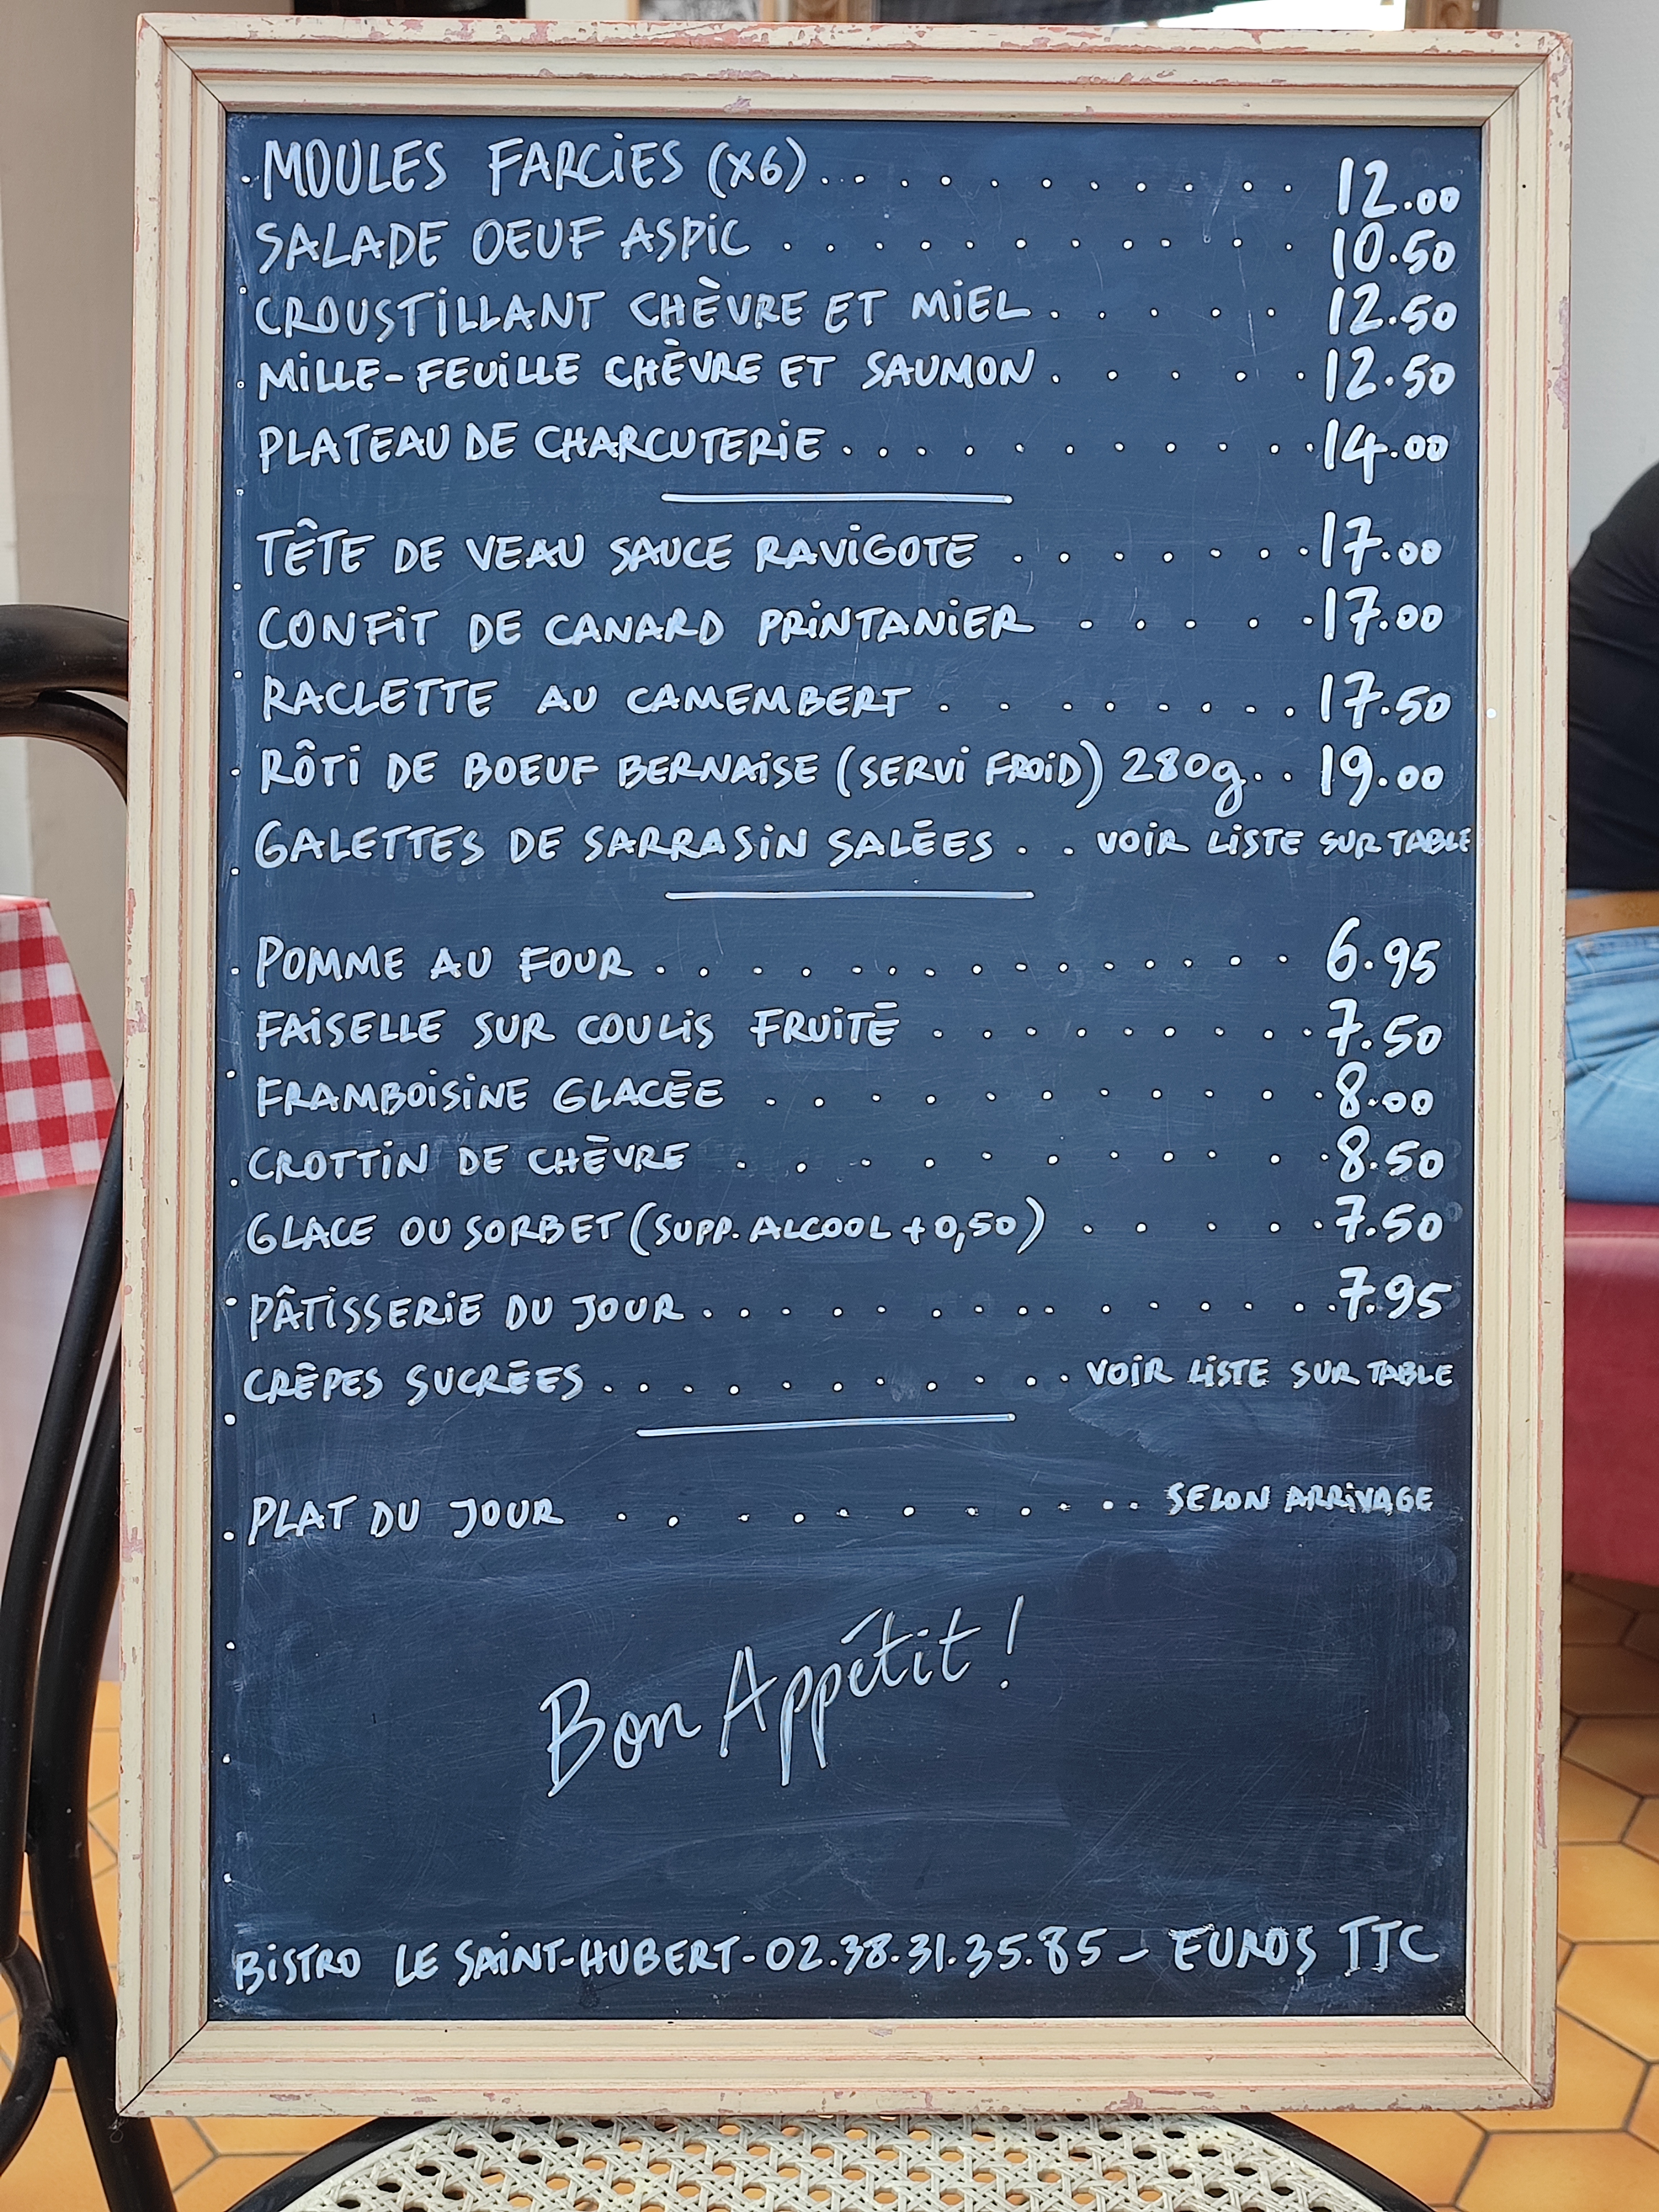 MOULES FARCIES (X6) . . . . . . . . . . . . 12.00
SALADE OEUF ASPIC . . . . . . . . . . . . 10.50
CROUSTILLANT CHÈVRE ET MIEL . . . . . 12.50
MILLE-FEUILLE CHÈVRE ET SAUMON . . . . . . 12.50
PLATEAU DE CHARCUTERIE . . . . . . . . . . . 14.00
TÊTE DE VEAU SAUCE RAVIGOTE . . . . . . . 17.00
CONFIT DE CANARD PRINTANIER . . . . . 17.00
RACLETTE AU CAMEMBERT . . . . . . . . 17.50
RÔTI DE BOEUF BERNAISE (SERVI FROID) 280g . . 19.00
GALETTES DE SARRASIN SALÉES . . VOIR LISTE SUR TABLE
POMME AU FOUR . . . . . . . . . . . . . . 6.95
FAISELLE SUR COULIS FRUITÉ . . . . . . . . 7.50
FRAMBOISINE GLACÉE . . . . . . . . . . . 8.00
CROTTIN DE CHÈVRE . . . . . . . . . . . 8.50
GLACE OU SORBET (SUPP. ALCOOL + 0,50) . . . . . 7.50
PÂTISSERIE DU JOUR . . . . . . . . . . . . . 7.95
CRÊPES SUCRÉES . . . . . . . . . . . . VOIR LISTE SUR TABLE
PLAT DU JOUR . . . . . . . . . . . SELON ARRIVAGE
Bon Appétit !
BISTRO LE SAINT-HUBERT - 02.38.31.35.85 - EUROS TTC